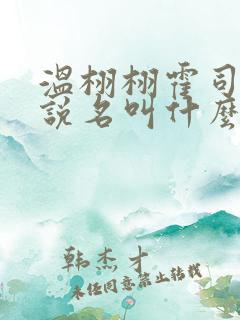 温栩栩霍司
說名叫什麼
韩杰才
未经同意禁止转载